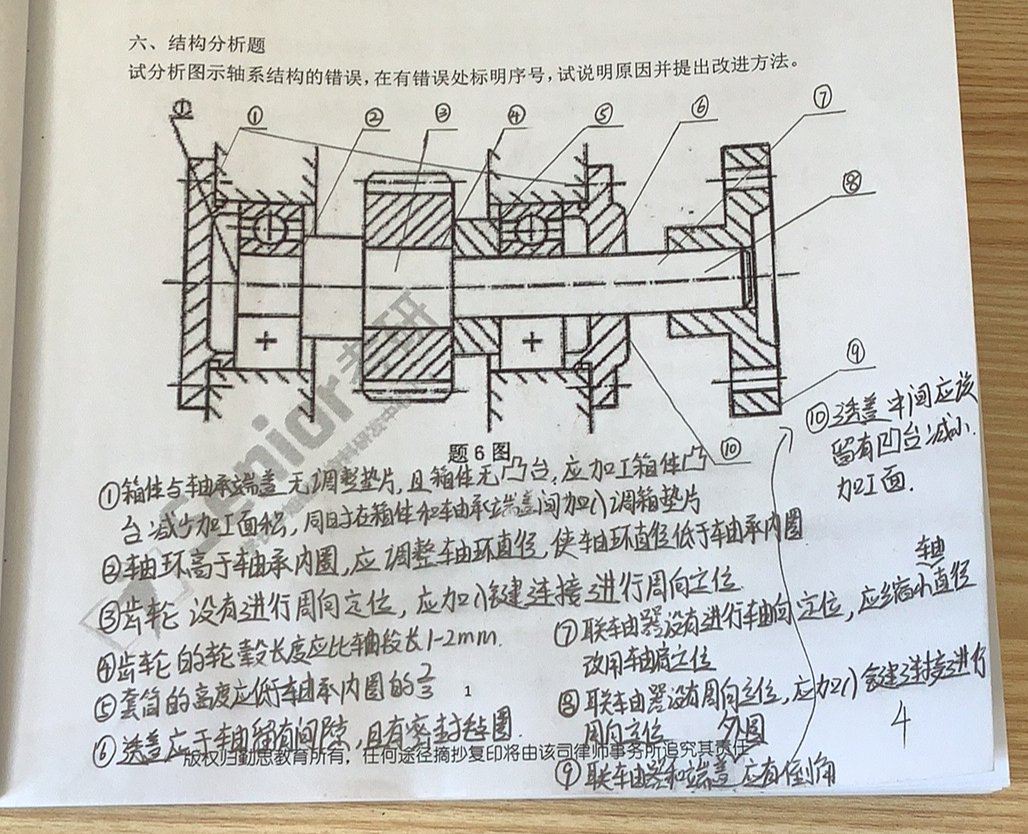 六、结构分析题
试分析图示轴系结构的错误，在有错误处标明序号，试说明原因并提出改进方法。
① ① ② ③ ④ ⑤ ⑥ ⑦
⑧
⑨
⑩
题6图
①箱体与轴承端盖无调整垫片，且箱体无凸台，应加工箱体凸
台减少加工面积，同时在箱体和轴承端盖间加入调箱垫片
②轴环高于轴承内圈，应调整轴环直径，使轴环直径低于轴承内圈
③齿轮没有进行周向定位，应加入键连接进行周向定位
④齿轮的轮毂长度应比轴段长1-2mm.
⑤套筒的高度应低于轴承内圈的2/3
⑥透盖应于轴留有间隙，且有密封毡圈.
⑦联轴器没有进行轴向定位，应缩小直径
轴
改用轴肩定位
⑧联轴器没有周向定位，应加入键连接进行
周向定位
外圆
⑨联轴器和端盖应有倒角
⑩透盖中间应该
留有凹台减小.
加工面.
4
1
版权归勤思教育所有，任何途径摘抄复印将由该司律师事务所追究其责任